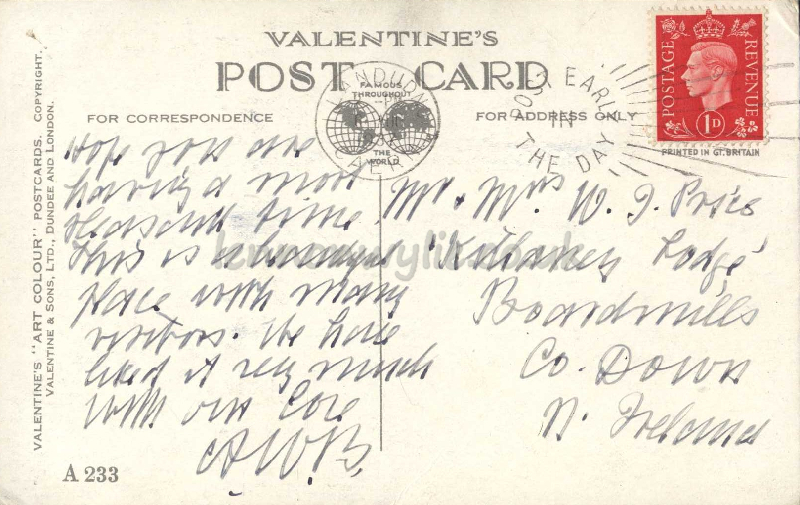 VALENTINE'S
POST CARD
FAMOUS
THROUGHOUT
THE
WORLD
FOR CORRESPONDENCE
FOR ADDRESS ONLY
POST EARLY
IN
THE DAY
POSTAGE
REVENUE
1D
PRINTED IN GT. BRITAIN
VALENTINE'S "ART COLOUR" POSTCARDS. COPYRIGHT.
VALENTINE & SONS, LTD., DUNDEE AND LONDON.
Hope you are
having a most
pleasant time
This is a
place with many
visitors. We have
liked it very much
with our love
A.W.B.
Mr & Mrs W. J. Price
'Killarney Lodge'
Boardmills
Co. Down
N. Ireland
A 233